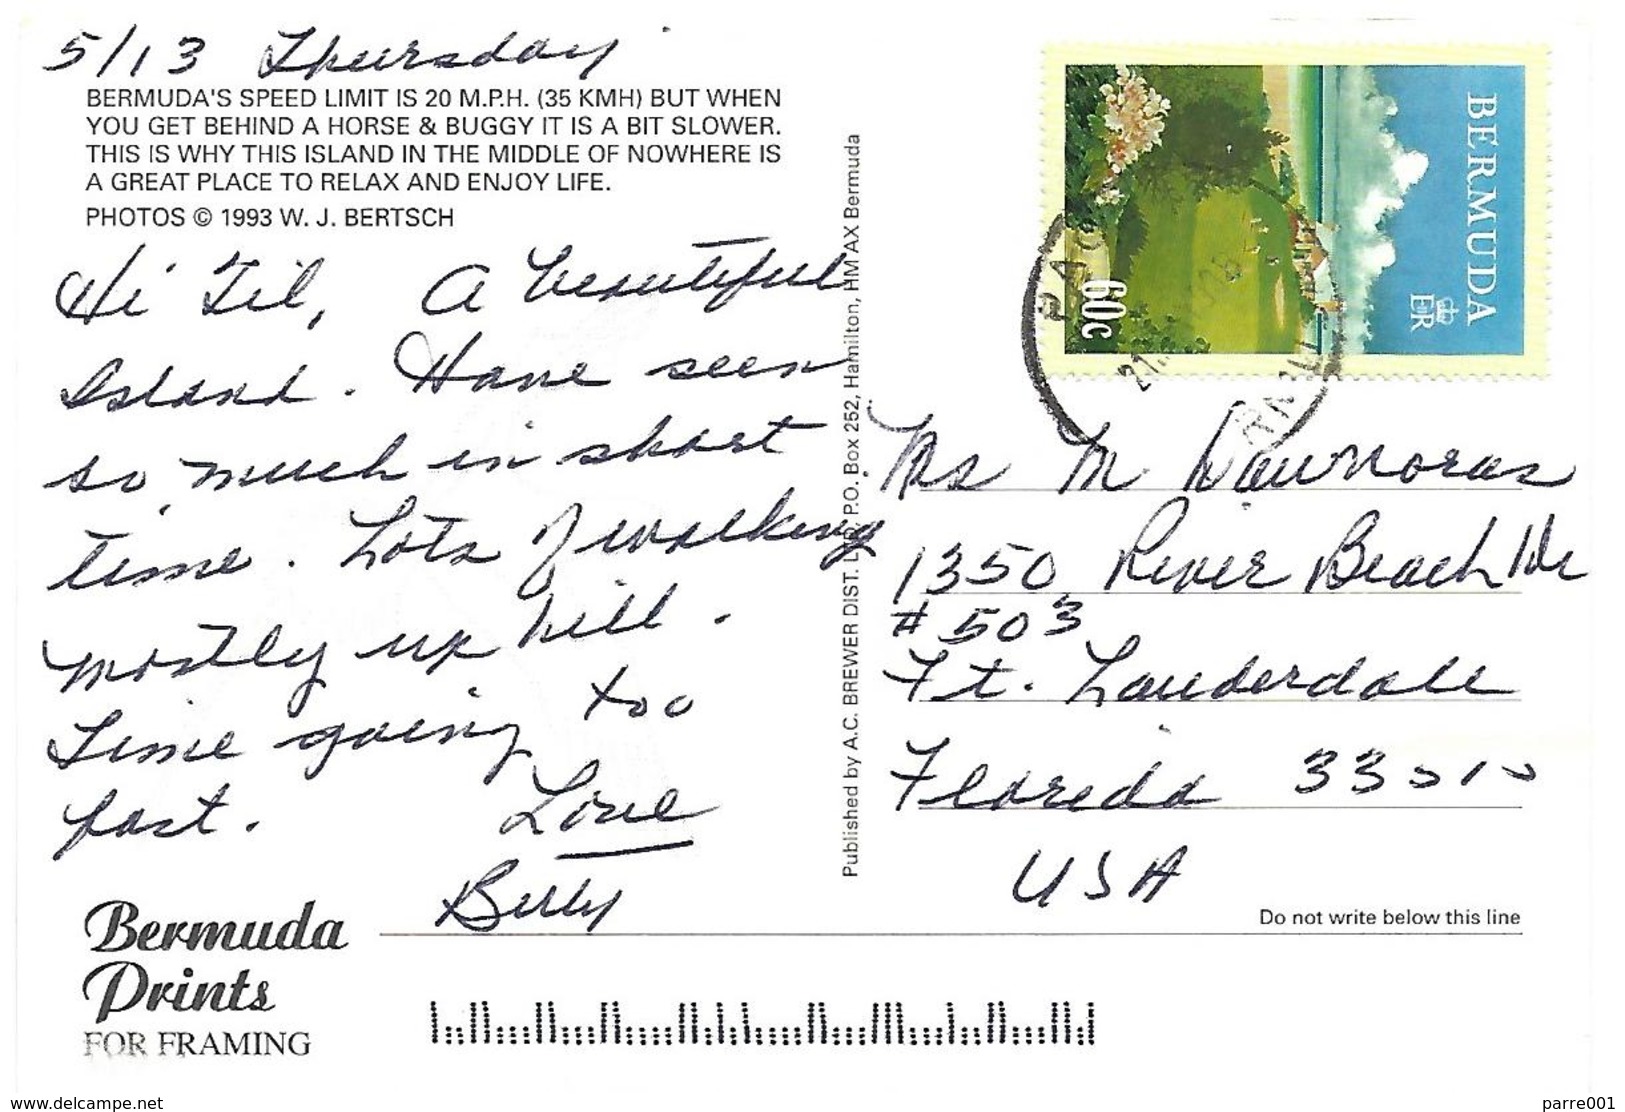 5/13 Thursday
BERMUDA'S SPEED LIMIT IS 20 M.P.H. (35 KMH) BUT WHEN
YOU GET BEHIND A HORSE & BUGGY IT IS A BIT SLOWER.
THIS IS WHY THIS ISLAND IN THE MIDDLE OF NOWHERE IS
A GREAT PLACE TO RELAX AND ENJOY LIFE.
PHOTOS © 1993 W. J. BERTSCH
Hi Til, A beautiful
Island. Have seen
so much in short
time. Lots of walking
mostly up hill.
Time going too
fast. Love
Bermuda
Prints
FOR FRAMING
Published by A.C. BREWER DIST. LTD. P.O. Box 252, Hamilton, HM AX Bermuda
BERMUDA
ER
60c
Ms M
1350 River Beach Dr
#503
Ft. Lauderdale
Florida 33315
USA
Do not write below this line
www.delcampe.net
parre001